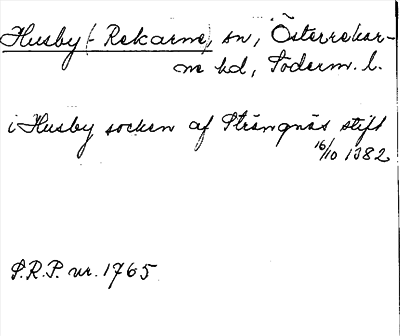 Husby (-Rekarne), sn, Österrekar-
ne hd, Söderm. l.
i Husby socken af Strängnäs stift
16/10 1382
S.R.P. nr. 1765